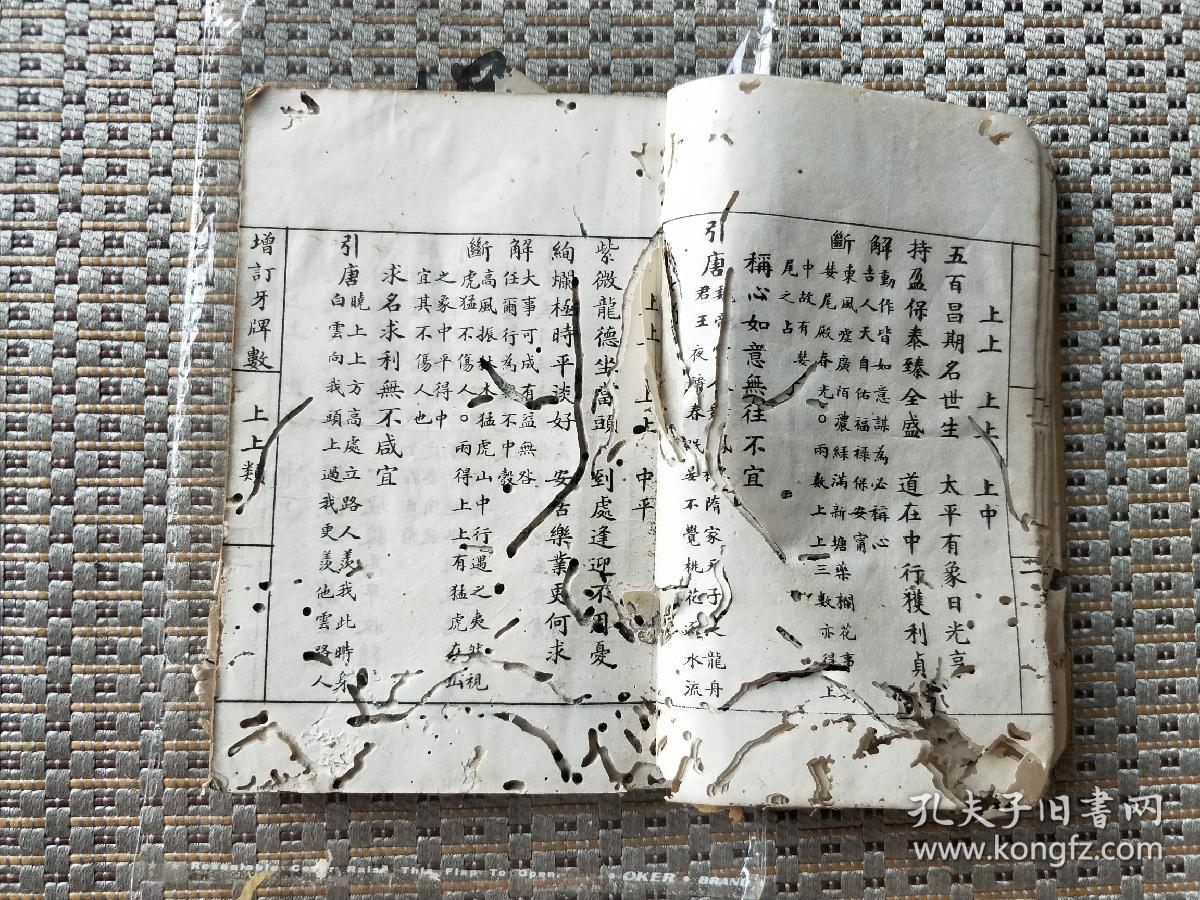 上上 上上 上中
五百昌期名世生 太平有象日光亨
持盈保泰臻全盛 道在中行獲利貞
解 動作皆如意謀為必稱心
吉人天自佑福祿保安甯
斷 東風噓廣陌濃綠滿新塘藥欄花事
婪尾殿春光○兩數上上三數亦得上
中故有婪
尾之占
稱心如意無往不宜
引唐 隋家天子 龍舟
君王夜 春 晏不覺桃花 水流
上上 上上 中平
紫微龍德坐當頭 到處逢迎不用憂
絢爛極時平淡好 安居樂業更何求
解 大事可成有益無咎
任爾行為 不中彀
斷 高風振林木猛虎山中行遇之夷然視
虎猛不傷人○兩得上上有猛虎在山
之象中平得中
宜其不傷人也
求名求利無不咸宜
引唐 曉上上方高處立路人羨我此時身
白雲向我頭上過我更羨他雲路人
增訂牙牌數 上上類
孔夫子旧書网
www.kongfz.com
To Open
OKER BRAND